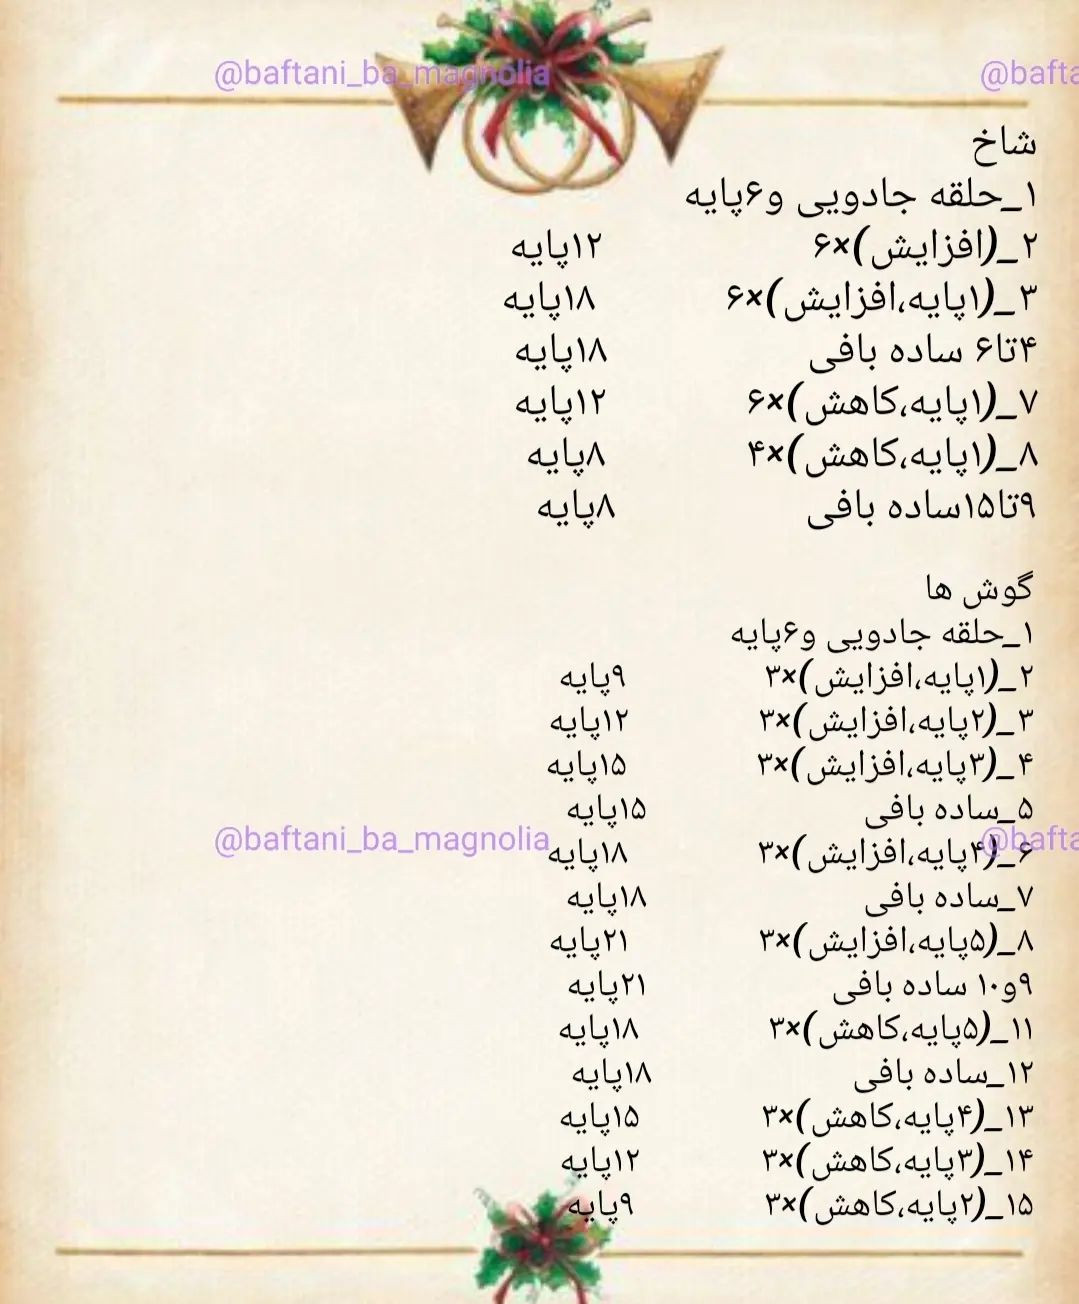 @baftani_ba_magnolia @bafta
شاخ
۱_حلقه جادویی و۶پایه
۲_(افزایش)×۶ ۱۲پایه
۳_(۱پایه،افزایش)×۶ ۱۸پایه
۴تا۶ ساده بافی ۱۸پایه
۷_(۱پایه،کاهش)×۶ ۱۲پایه
۸_(۱پایه،کاهش)×۴ ۸پایه
۹تا۱۵ساده بافی ۸پایه
گوش ها
۱_حلقه جادویی و۶پایه
۲_(۱پایه،افزایش)×۳ ۹پایه
۳_(۲پایه،افزایش)×۳ ۱۲پایه
۴_(۳پایه،افزایش)×۳ ۱۵پایه
۵_ساده بافی ۱۵پایه
@baftani_ba_magnolia @bafta
۶_(۴پایه،افزایش)×۳ ۱۸پایه
۷_ساده بافی ۱۸پایه
۸_(۵پایه،افزایش)×۳ ۲۱پایه
۹و۱۰ ساده بافی ۲۱پایه
۱۱_(۵پایه،کاهش)×۳ ۱۸پایه
۱۲_ساده بافی ۱۸پایه
۱۳_(۴پایه،کاهش)×۳ ۱۵پایه
۱۴_(۳پایه،کاهش)×۳ ۱۲پایه
۱۵_(۲پایه،کاهش)×۳ ۹پایه